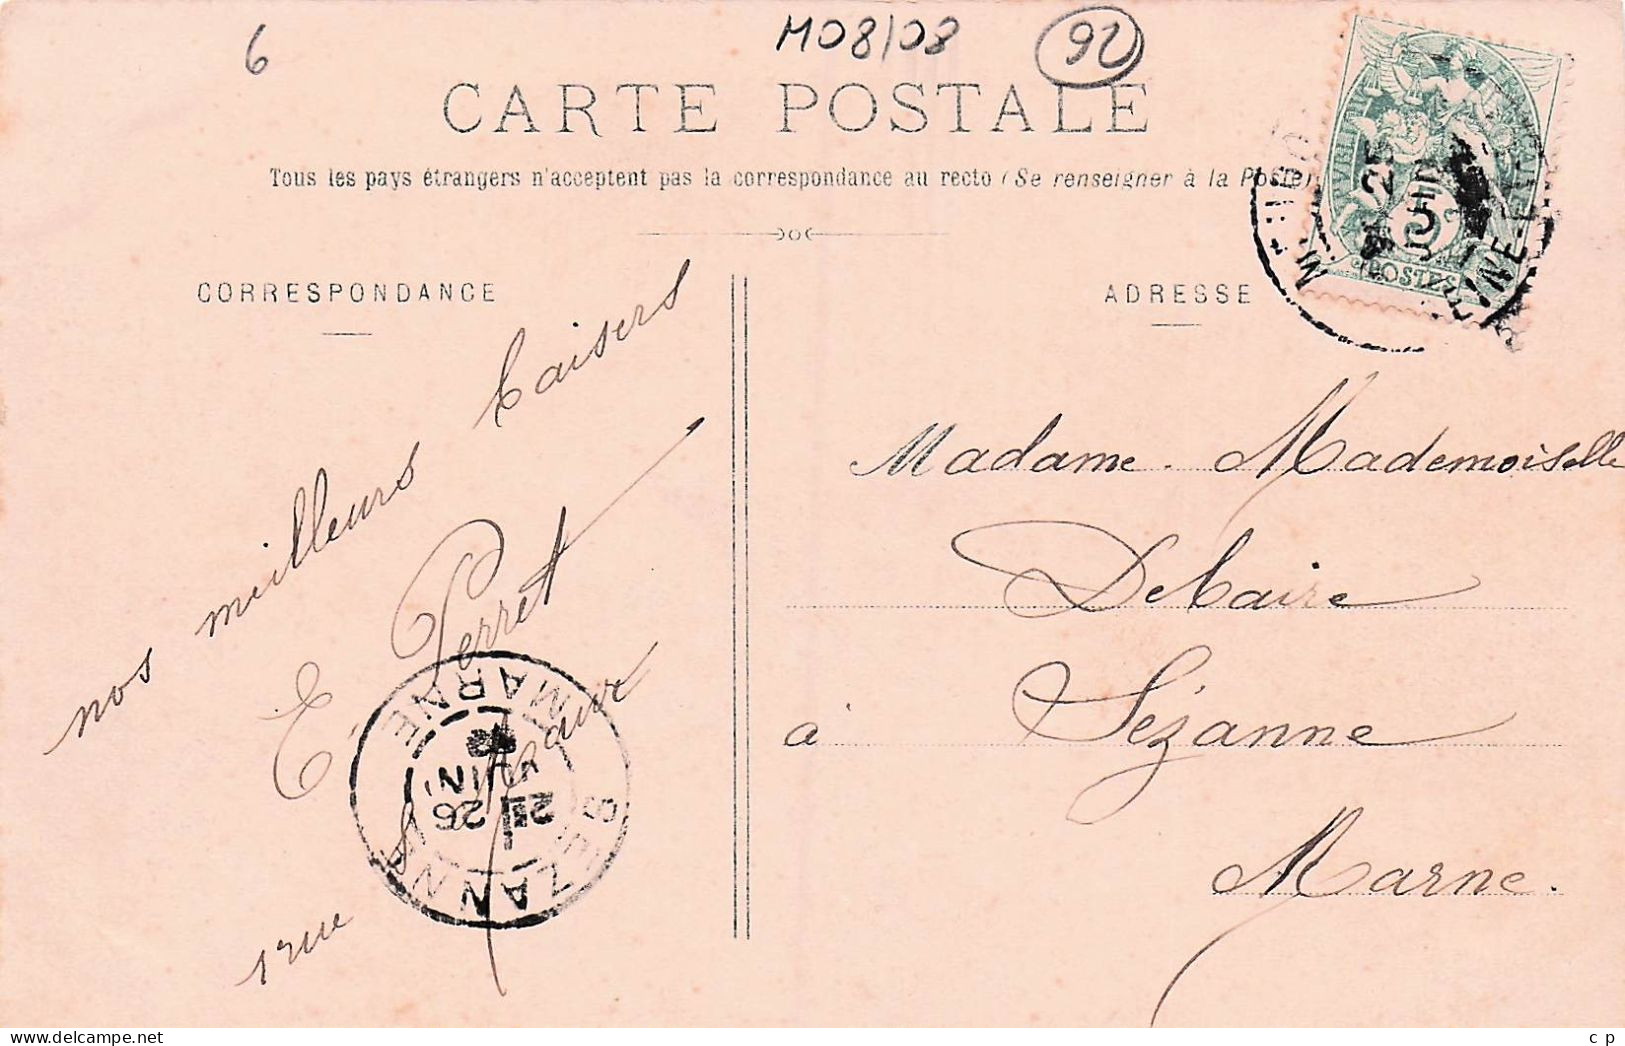 6
M08/08
92
CARTE POSTALE
Tous les pays étrangers n'acceptent pas la correspondance au recto (Se renseigner à la Poste)
CORRESPONDANCE
ADRESSE
nos meilleurs baisers
E. Perret
1 rue
Madame. Mademoiselle
Debaire
à Sézanne
Marne.
SEZANNE
MARNE
26
JUIN
25
5
POSTES
delcampe.net
c p